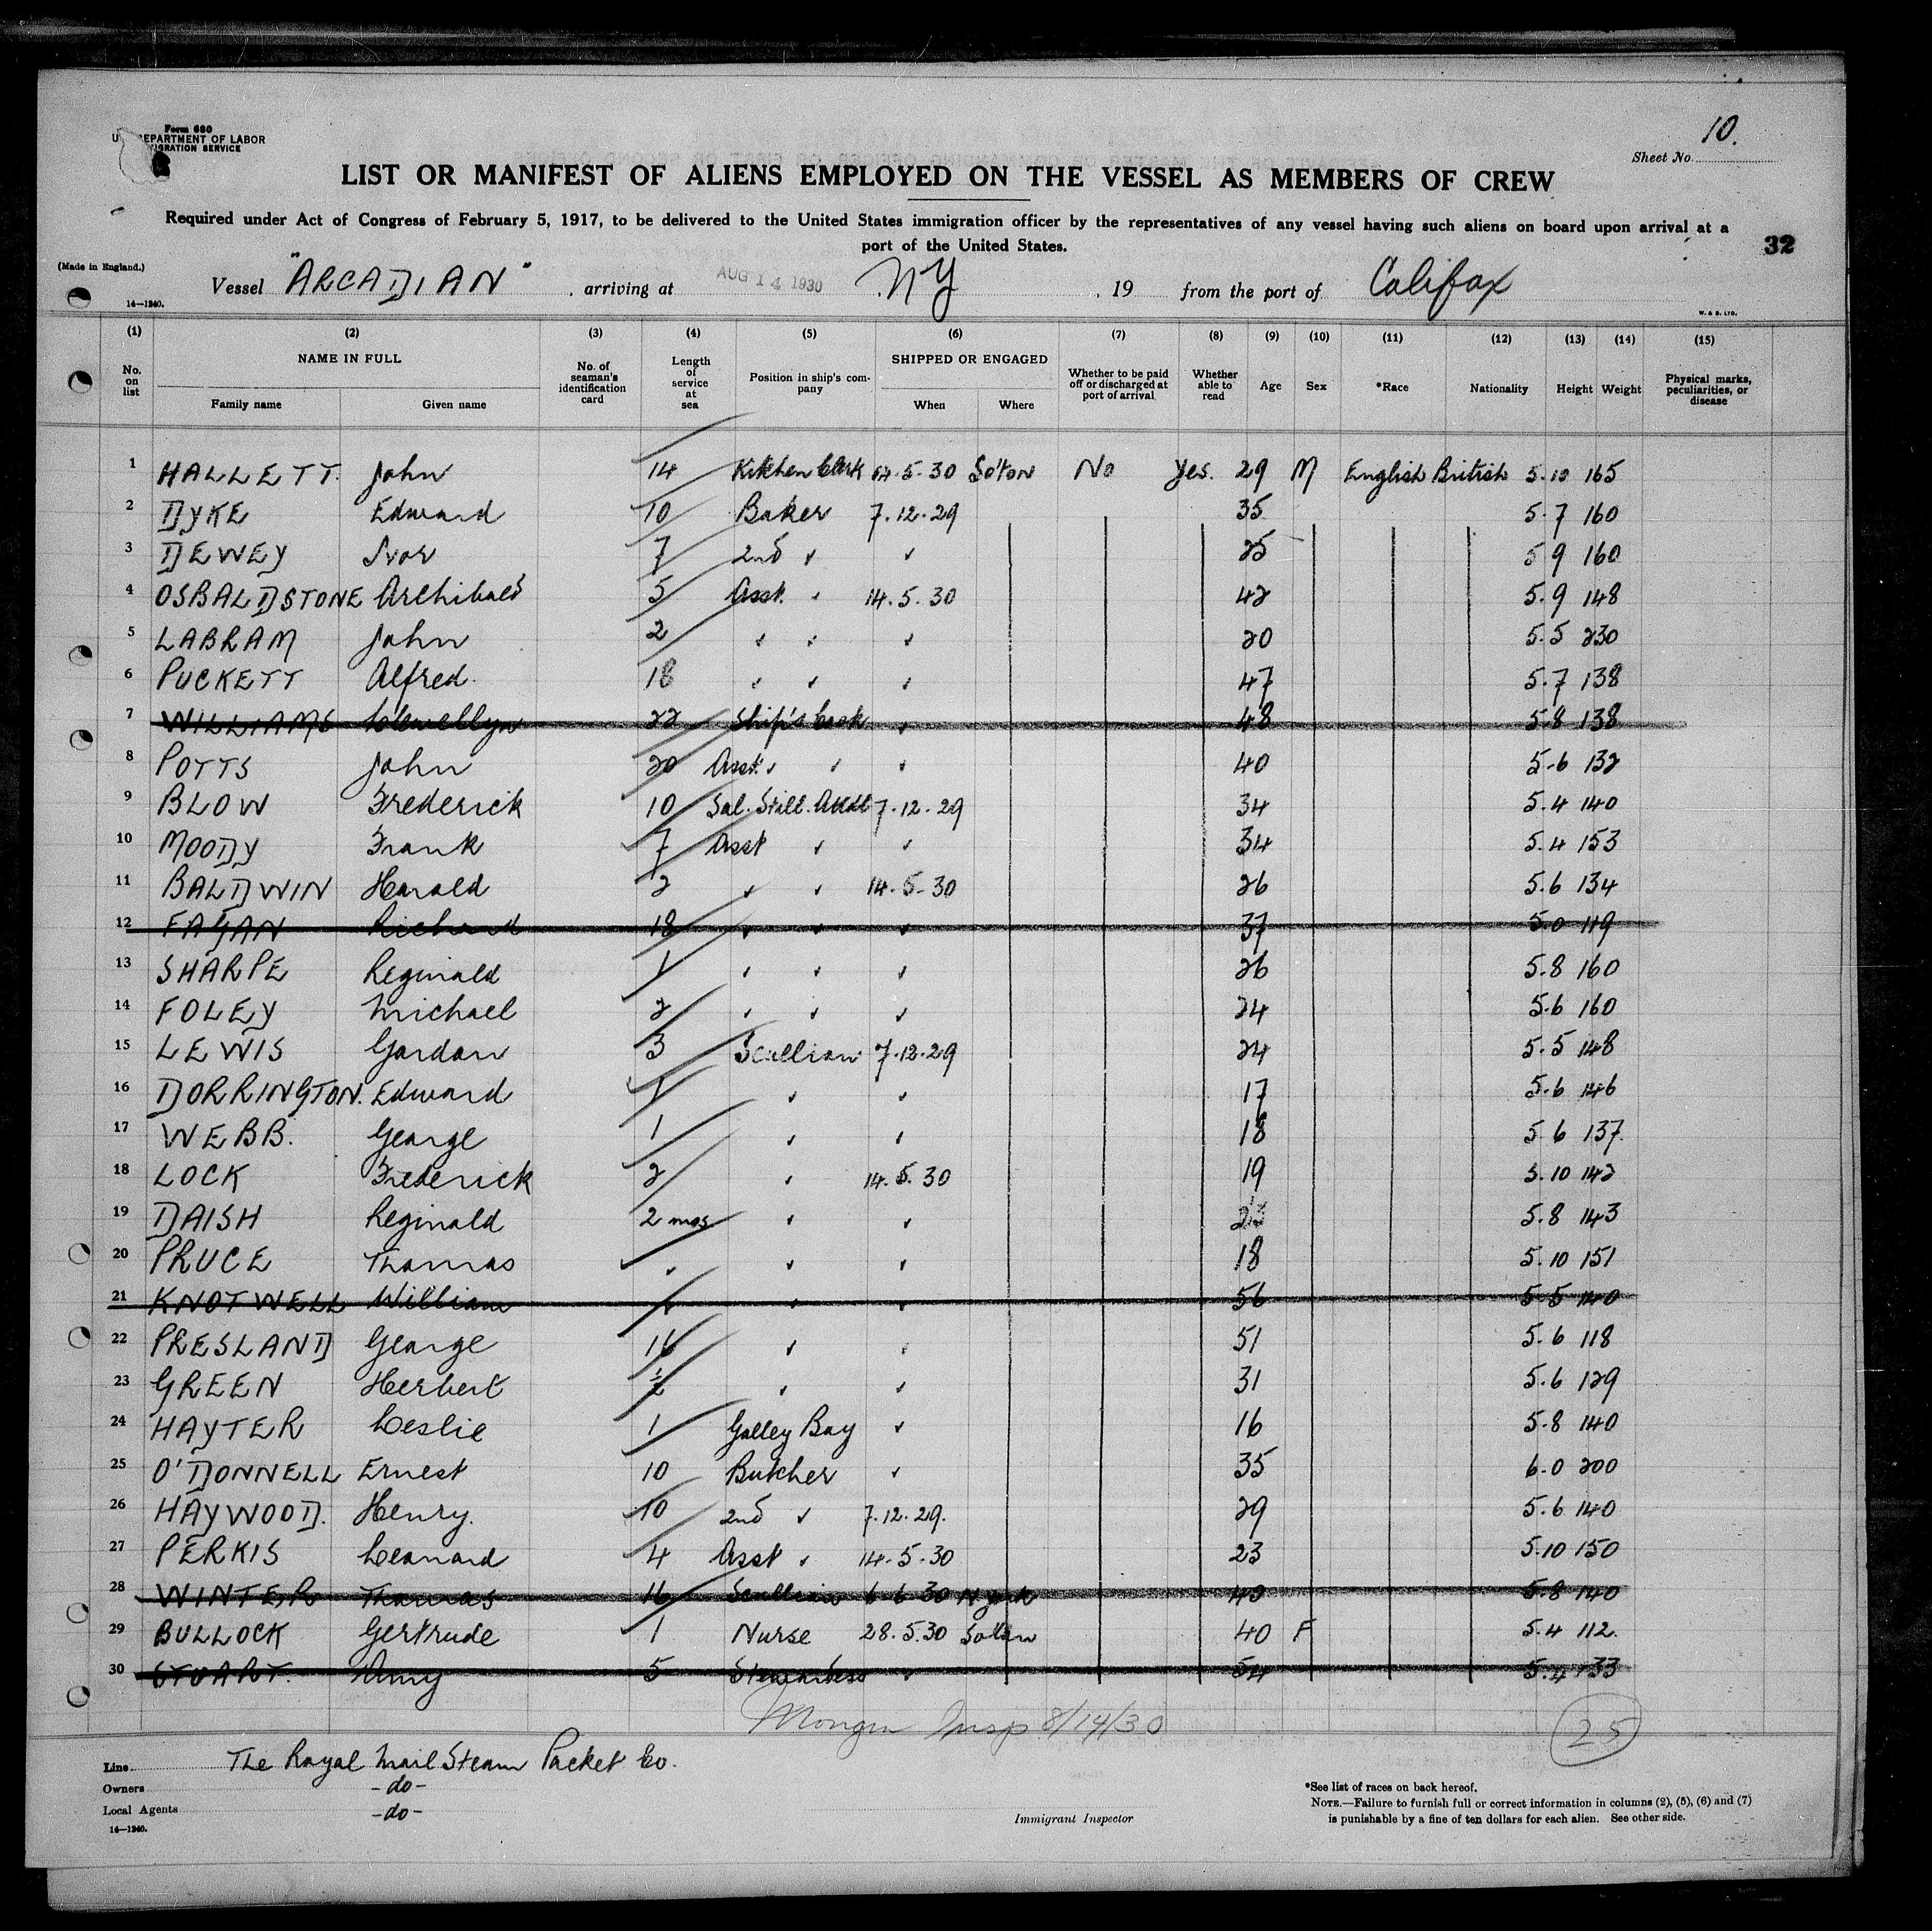 Form 680
DEPARTMENT OF LABOR
IGRATION SERVICE
10.
Sheet No.
LIST OR MANIFEST OF ALIENS EMPLOYED ON THE VESSEL AS MEMBERS OF CREW
Required under Act of Congress of February 5, 1917, to be delivered to the United States immigration officer by the representatives of any vessel having such aliens on board upon arrival at a
port of the United States.
32
(Made in England.)
Vessel "ARCADIAN" , arriving at AUG 14 1930 NY , 19 from the port of Califax
14—1240.
W. & S. LTD.
(1) (2) (3) (4) (5) (6) (7) (8) (9) (10) (11) (12) (13) (14) (15)
No. on list NAME IN FULL Family name Given name No. of seaman's identification card Length of service at sea Position in ship's company SHIPPED OR ENGAGED When Where Whether to be paid off or discharged at port of arrival Whether able to read Age Sex *Race Nationality Height Weight Physical marks, peculiarities, or disease
1 HALLETT. John 14 Kitchen Clerk 14.5.30 So'ton No yes. 29 M English British 5.10 165
2 DYKE Edward 10 Baker 7.12.29 35 5.7 160
3 DEWEY Ivor 7 2nd " " 25 5 9 160
4 OSBALDSTONE Archibald 5 Asst. " 14.5.30 42 5.9 148
5 LABRAM John 2 " " " 20 5.5 230
6 PUCKETT Alfred. 18 " " " 47 5.7 138
7 WILLIAMS Llewellyn 22 Ship's Cook " 48 5.8 138
8 POTTS John 20 Asst. " " " 40 5.6 132
9 BLOW Frederick 10 Sal. Still. Attdt 7.12.29 34 5.4 140
10 MOODY Frank 7 Asst " " 34 5.4 153
11 BALDWIN Harold 2 " " 14.5.30 26 5.6 134
12 FAGAN Richard 18 " " " 37 5.0 119
13 SHARPE Reginald 1 " " " 26 5.8 160
14 FOLEY Michael 2 " " " 24 5.6 160
15 LEWIS Gordon 3 Scullion 7.12.29 24 5.5 148
16 DORRINGTON. Edward 1 " " 17 5.6 146
17 WEBB. George 1 " " 18 5 6 137.
18 LOCK Frederick 2 " 14.5.30 19 5.10 142
19 DAISH Reginald 2 mos " " 5.8 143
20 PRUCE Thomas " " " 18 5.10 151
21 KNOTWELL William " " 56 5.5 140
22 PRESLAND George 16 " " 51 5.6 118
23 GREEN Herbert ½ " " 31 5.6 129
24 HAYTER Leslie 1 Galley Boy " 16 5.8 140
25 O'DONNELL Ernest 10 Butcher " 35 6.0 200
26 HAYWOOD. Henry. 10 2nd " 7.12.29. 29 5.6 140
27 PERKIS Leonard 4 Asst " 14.5.30 23 5.10 150
28 WINTER Thomas 16 Scullion 6 6 30 N York 40 5.8 140
29 BULLOCK Gertrude 1 Nurse 28.5.30 Soton 40 F 5.4 112.
30 STUART. Amy 5 Stewardess " 54 5.4 133
Insp 8/14/30
25
Line The Royal Mail Steam Packet Co.
Owners -do-
Local Agents -do-
14—1240.
Immigrant Inspector
*See list of races on back hereof.
NOTE.—Failure to furnish full or correct information in columns (2), (5), (6) and (7)
is punishable by a fine of ten dollars for each alien. See other side.